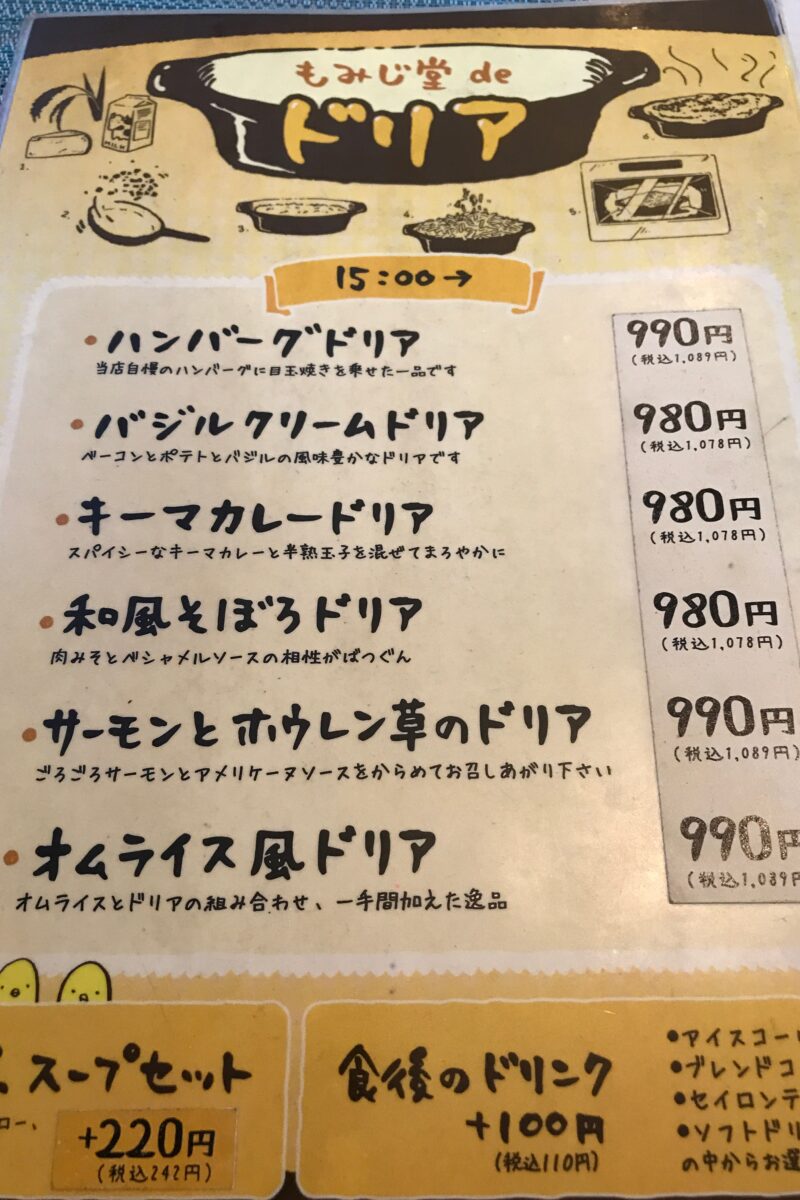 もみじ堂 de
ドリア
1.
2.
3.
4.
5.
6.
15:00→
・ハンバーグドリア 990円
当店自慢のハンバーグに目玉焼きを乗せた一品です (税込1,089円)
・バジルクリームドリア 980円
ベーコンとポテトとバジルの風味豊かなドリアです (税込1,078円)
・キーマカレードリア 980円
スパイシーなキーマカレーと半熟玉子を混ぜてまろやかに (税込1,078円)
・和風そぼろドリア 980円
肉みそとベシャメルソースの相性がばつぐん (税込1,078円)
・サーモンとホウレン草のドリア 990円
ごろごろサーモンとアメリケーヌソースをからめてお召しあがり下さい (税込1,089円)
・オムライス風ドリア 990円
オムライスとドリアの組み合わせ、一手間加えた逸品 (税込1,089円
スープセット
ロー、
+220円
(税込242円)
食後のドリンク
+100円
(税込110円)
●アイスコー
●ブレンドコ
●セイロンテ
●ソフトドリ
の中からお選